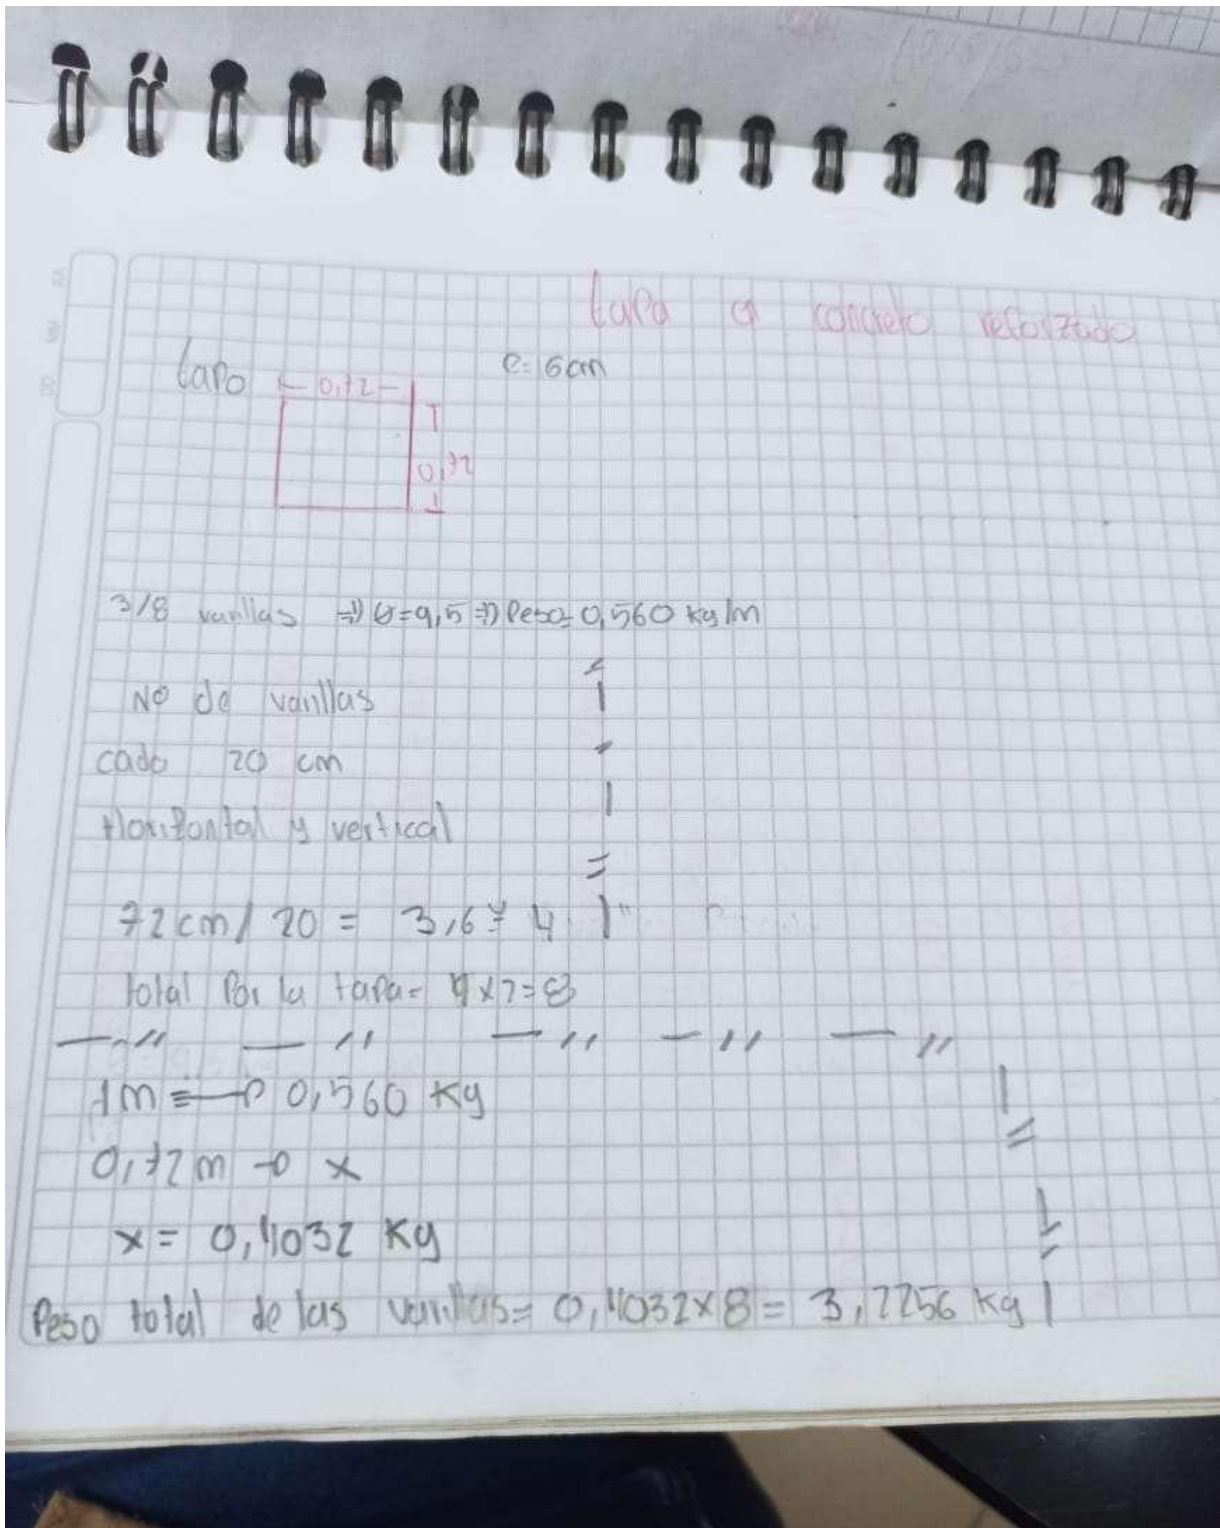 tapa en concreto reforzado
tapa
e=6cm
0,72
0,72
3/8 varillas => Ø=9,5 => Peso= 0,560 kg/m
Nº de varillas
cada 20 cm
Horizontal y vertical
72cm/ 20 = 3,6 ≅ 4
total Por la tapa= 4x2=8
1m → 0,560 Kg
0,72m → x
x= 0,4032 Kg
Peso total de las varillas= 0,4032x8= 3,2256 kg